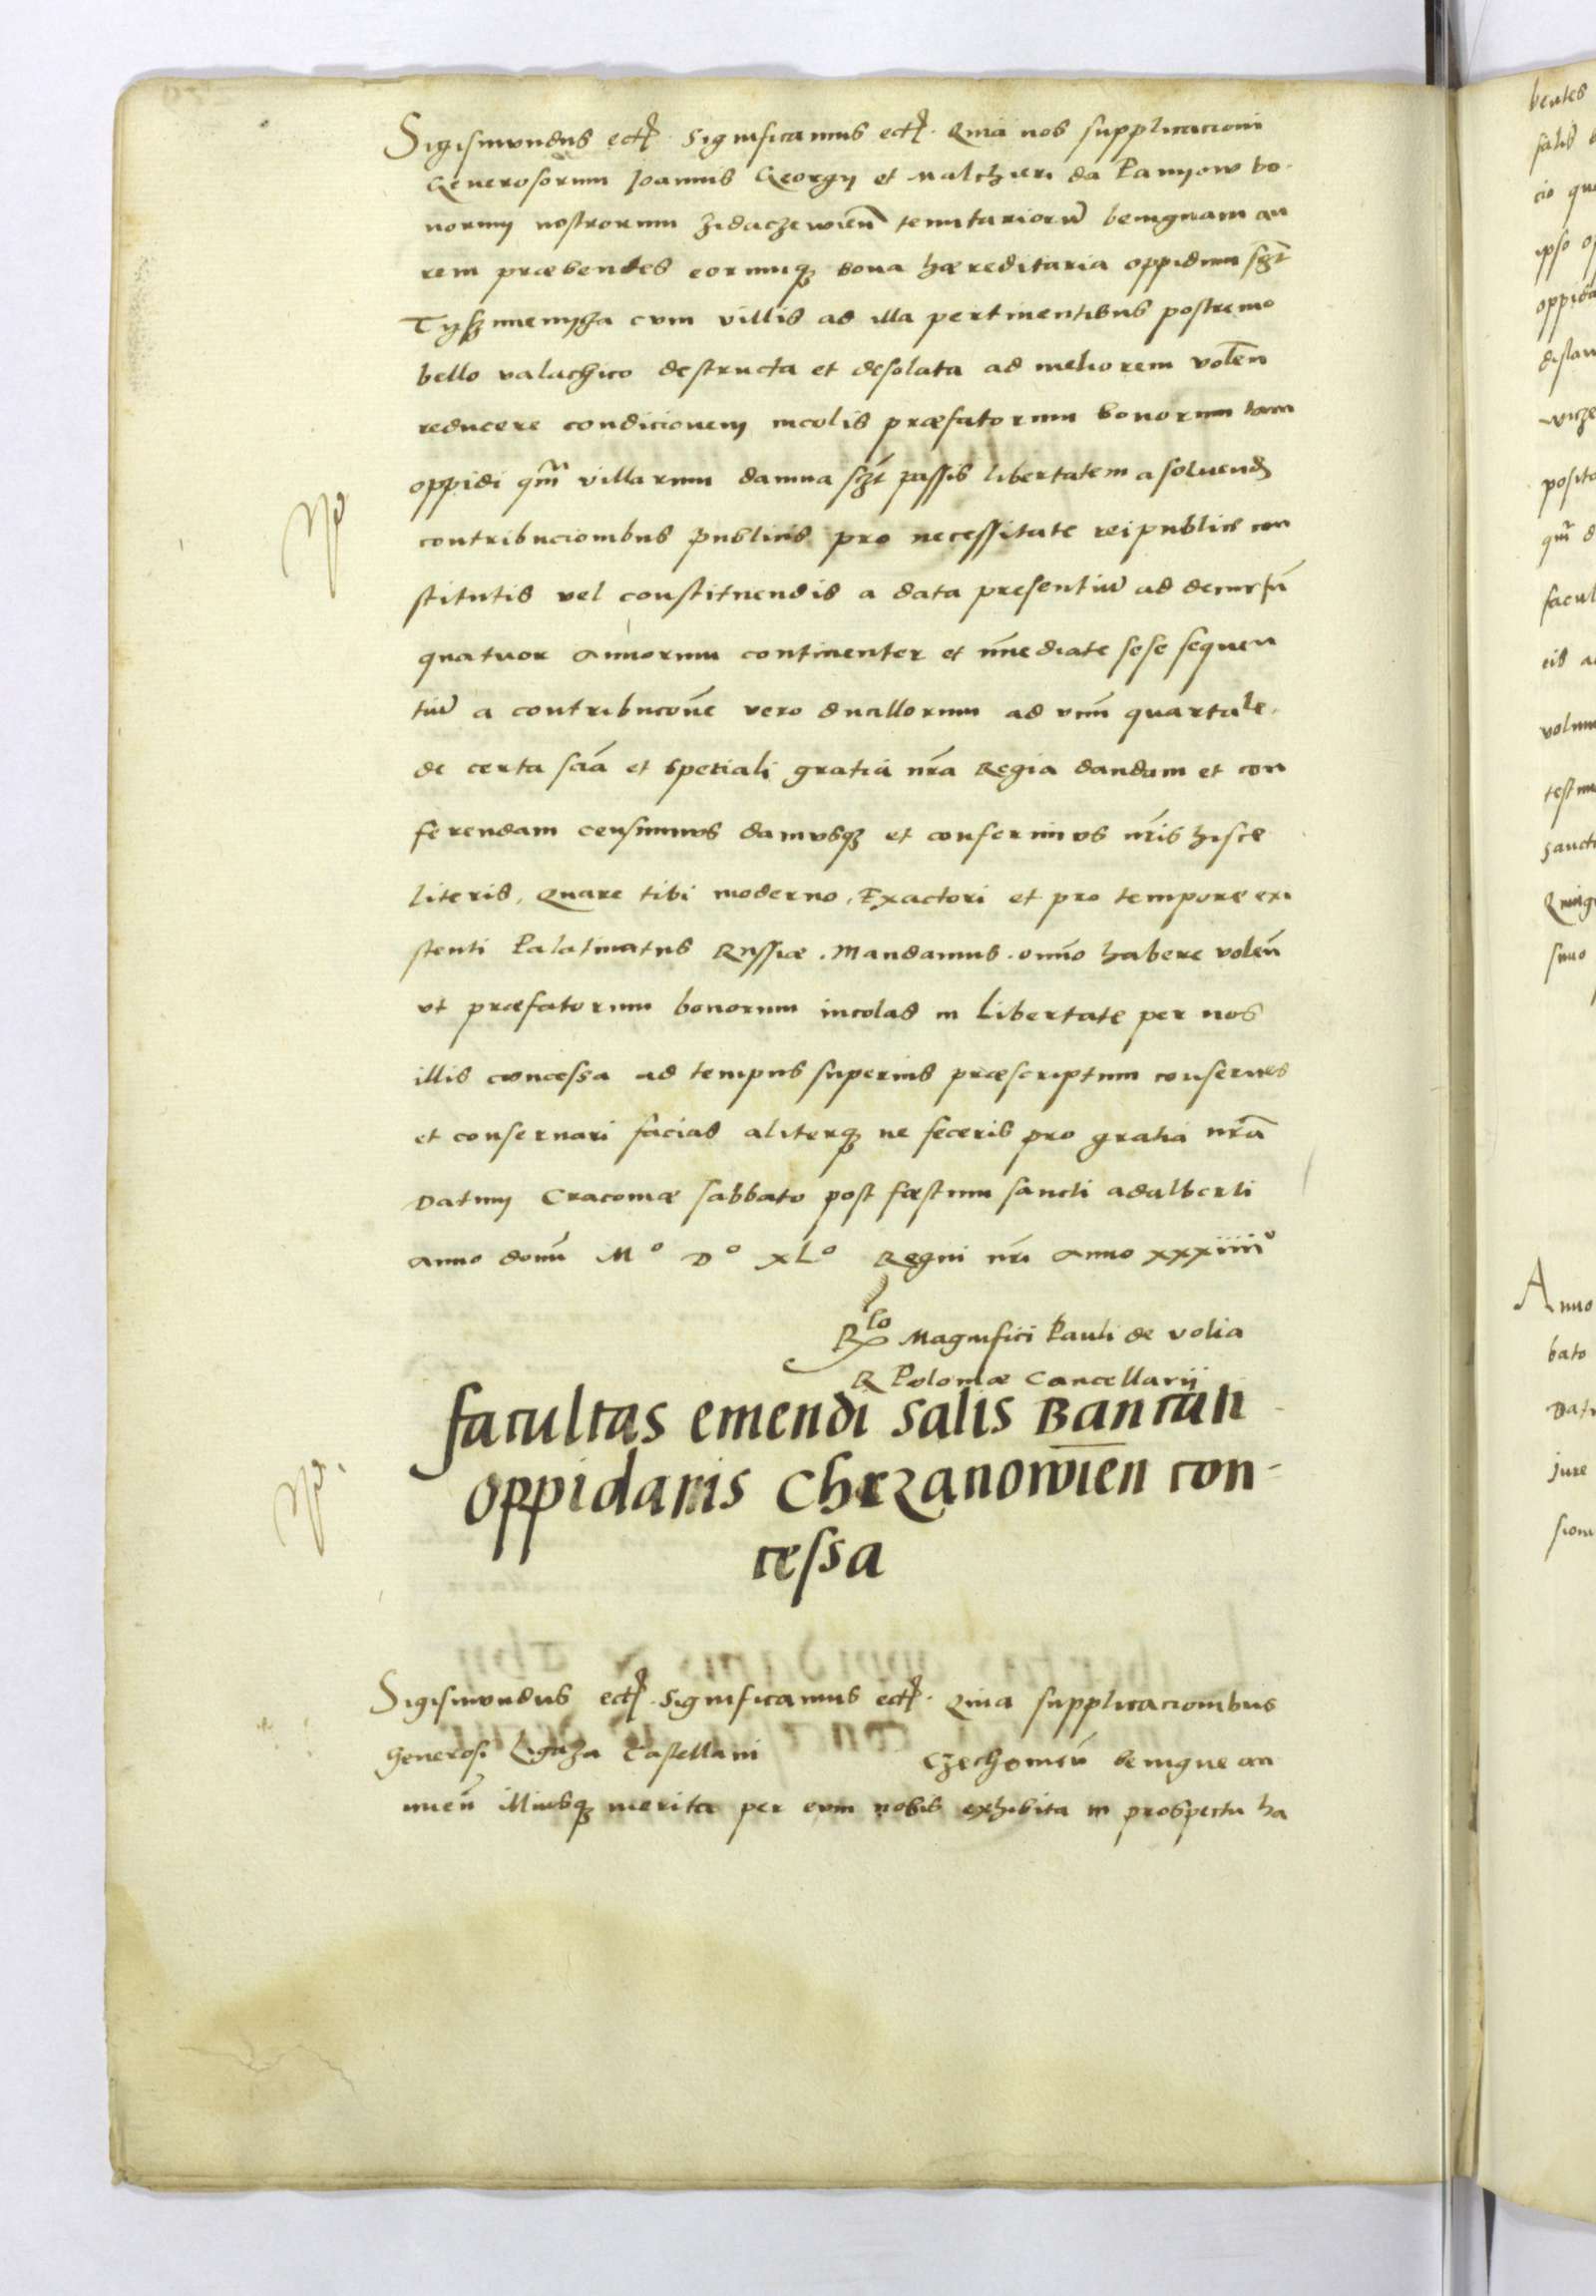 Sigismundus ect. Significamus ect. Quia nos supplicacioni
Generosorum Joannis Georgy et Malcheri da Paniow bo-
norum nostrorum Zidaczewien tenutariorum benignam au
rem præbendes eorumque bona hæreditaria oppidum scilicet
cum villis ad illa pertinentibus postremo
bello valachico destructa et desolata ad meliorem volen
reducere condicionem incolis præfatorum bonorum tam
oppidi qm villarum damna passis libertatem a solvend
contribucionibus publicis pro necessitate reipublice con
stitutis vel constituendis a data presentium ad decursu
quatuor annorum continenter et immediate sese sequen
tium a contribucione vero ducillorum ad unum quartale.
de certa scia et speciali gratia nra Regia dandam et con
ferendam censuimus damusque et conferimus nris hisce
literis, Quare tibi moderno, Exactori et pro tempore exi
stenti Palatinatus Russiæ. Mandamus. omno habere volen
ut præfatorum bonorum incolas in Libertate per nos
illis concessa ad tempus superius præscriptum conserves
et conservari facias aliterque ne feceris pro gratia nra
Datum Cracoviæ sabbato post fæstum sancti adalberti
Anno domi Mo Do XLo Regni nri Anno xxxiiiio
Rlo Magnifici Pauli de volia
R Poloniæ Cancellarii
facultas emendi salis Bancati
oppidanis Chrzanowien con-
cessa
Sigismundus ect. Significamus ect. Quia supplicacionibus
Generosi Castellani Czechowien benigne an
nuen illiusque merita per eum nobis exhibita in prospectu ha